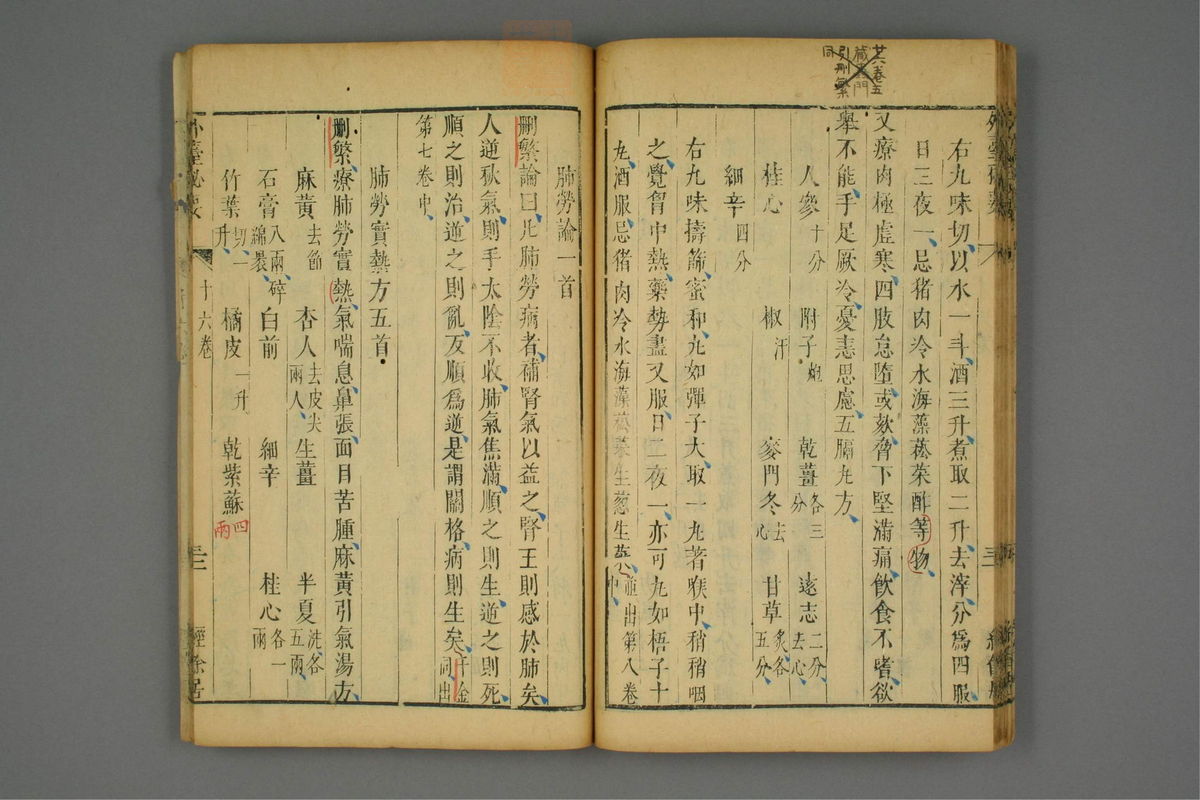 廿六卷五
藏■門
引刪繁
同
右九味切以水一斗酒三升煮取二升去滓分為四服
日三夜一忌猪肉冷水海藻菘菜酢等物
又療肉極虛寒四肢怠墮或欬脅下堅滿痛飲食不嗜欲
舉不能手足厥冷憂恚思慮五膈丸方
人參十分 附子炮 乾薑各三分 遠志二分去心
桂心 椒汗 麥門冬去心 甘草炙各五分
細辛四分
右九味擣篩蜜和丸如彈子大取一丸著喉中稍稍咽
之覺胷中熱藥勢盡又服日二夜一亦可丸如梧子十
丸酒服忌猪肉冷水海藻菘菜生葱生菜並出第八卷中
肺勞論一首
刪繁論曰凡肺勞病者補腎氣以益之腎王則感於肺矣
人逆秋氣則手太陰不收肺氣焦滿順之則生逆之則死
順之則治逆之則亂反順為逆是謂關格病則生矣千金同出
第七卷中
肺勞實熱方五首
刪繁療肺勞實熱氣喘息鼻張面目苦腫麻黃引氣湯方
麻黃去節 杏人去皮尖兩人 生薑 半夏洗各五兩
石膏八兩碎綿裹 白前 細辛 桂心各一兩
竹葉切一升 橘皮一升 乾紫蘇四兩
外臺秘要 十六卷 三 經餘居